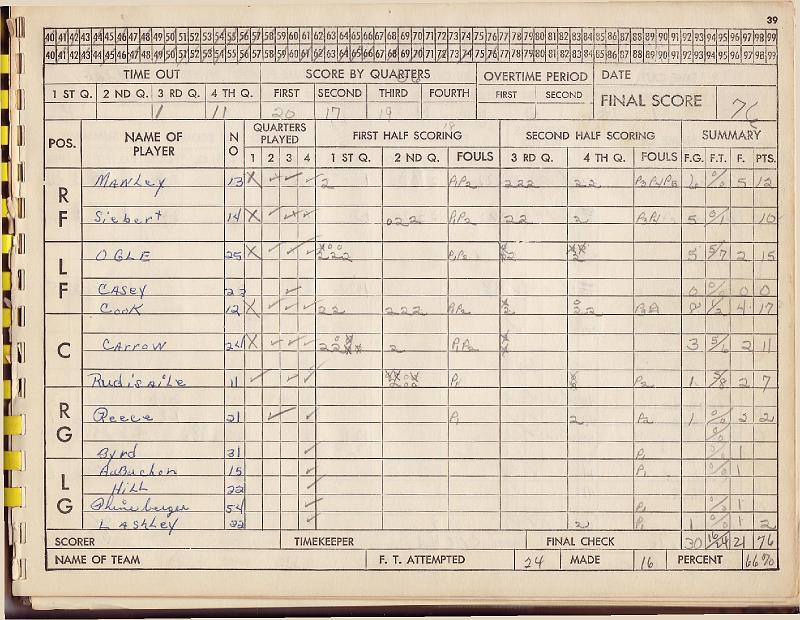 39
40 41 42 43 44 45 46 47 48 49 50 51 52 53 54 55 56 57 58 59 60 61 62 63 64 65 66 67 68 69 70 71 72 73 74 75 76 77 78 79 80 81 82 83 84 85 86 87 88 89 90 91 92 93 94 95 96 97 98 99
40 41 42 43 44 45 46 47 48 49 50 51 52 53 54 55 56 57 58 59 60 61 62 63 64 65 66 67 68 69 70 71 72 73 74 75 76 77 78 79 80 81 82 83 84 85 86 87 88 89 90 91 92 93 94 95 96 97 98 99
TIME OUT SCORE BY QUARTERS OVERTIME PERIOD DATE
1 ST Q. 2 ND Q. 3 RD Q. 4 TH Q. FIRST SECOND THIRD FOURTH FIRST SECOND FINAL SCORE 76
1 11 20 17 19
POS. NAME OF PLAYER NO QUARTERS PLAYED FIRST HALF SCORING SECOND HALF SCORING SUMMARY
1 2 3 4 1 ST Q. 2 ND Q. FOULS 3 RD Q. 4 TH Q. FOULS F.G. F.T. F. PTS.
RF MANLEY 13 X 2 P1P2 222 22 P3P4P5 6 0/0 5 12
Siebert 14 X 022 P1P2 22 2 P3P4 5 0/1 10
LF OGLE 25 X 222 P1P2 2 2 5 5/7 2 15
CASEY 23 0 0/0 0 0
COOK 12 X 22 222 P1P2 2 22 8 1/2 4 17
C CARROW 24 X 22 2 P1P2 3 5/6 2 11
Rudisaile 11 2 P1 P2 1 5/8 2 7
RG Reece 21 P1 2 P2 1 0/0 2 2
Byrd 31 P1 0/0 1
LG AuBuchon 15 P1 0/0 1
Hill 22
Rhineberger 54 P1 0/0 1
LASHLEY 32 2 P1 1 0/0 1 2
SCORER TIMEKEEPER FINAL CHECK 30 16/24 21 76
NAME OF TEAM F. T. ATTEMPTED 24 MADE 16 PERCENT 66%